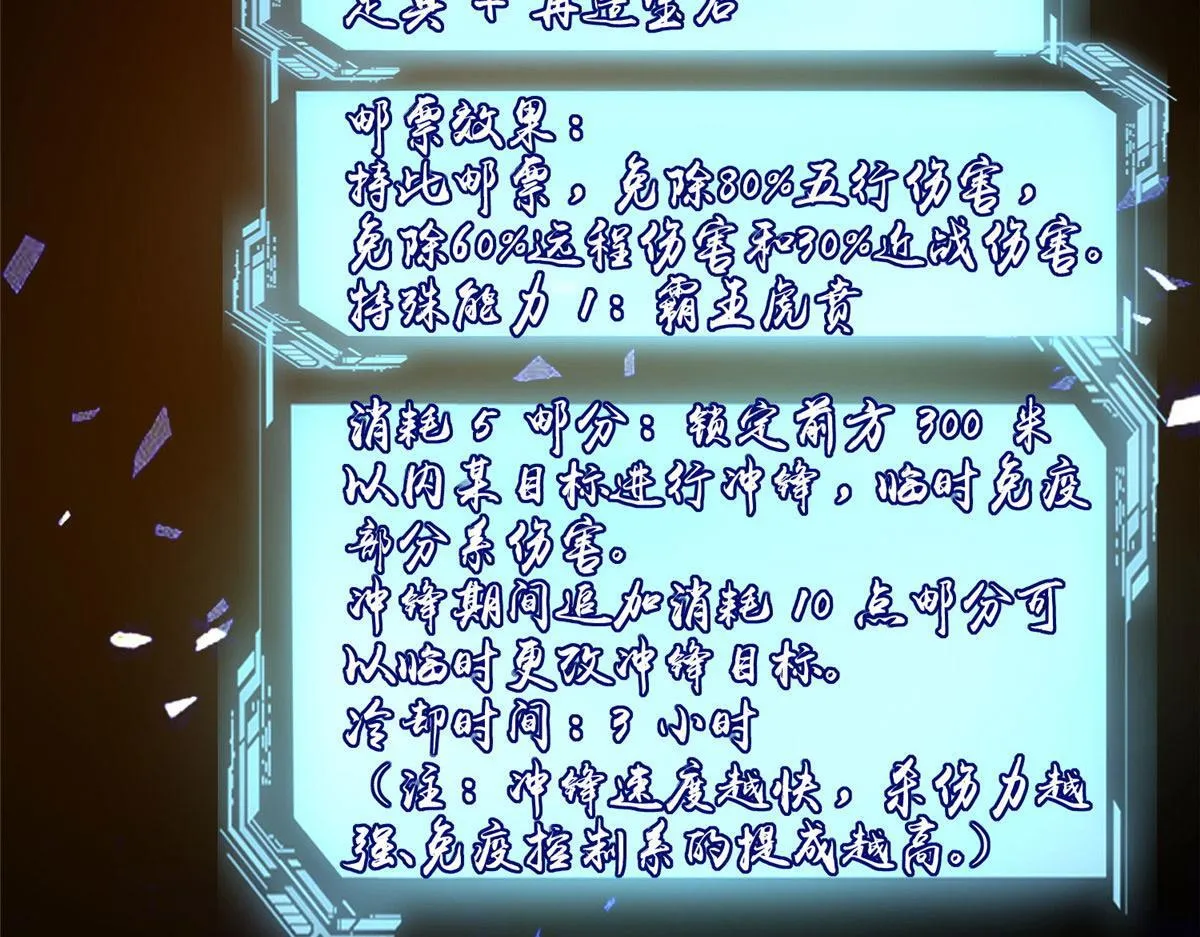 邮票效果：
持此邮票，免除80%五行伤害，
免除60%远程伤害和30%近战伤害。
持殊能力 1：霸王虎贲
消耗 5 邮分：锁定前方 300 米
以内某目标进行冲锋，临时免疫
部分系伤害。
冲锋期间追加消耗 10 点邮分可
以临时更改冲锋目标。
冷却时间：3 小时
（注：冲锋速度越快，杀伤力越
强、免疫控制系的提成越高。）